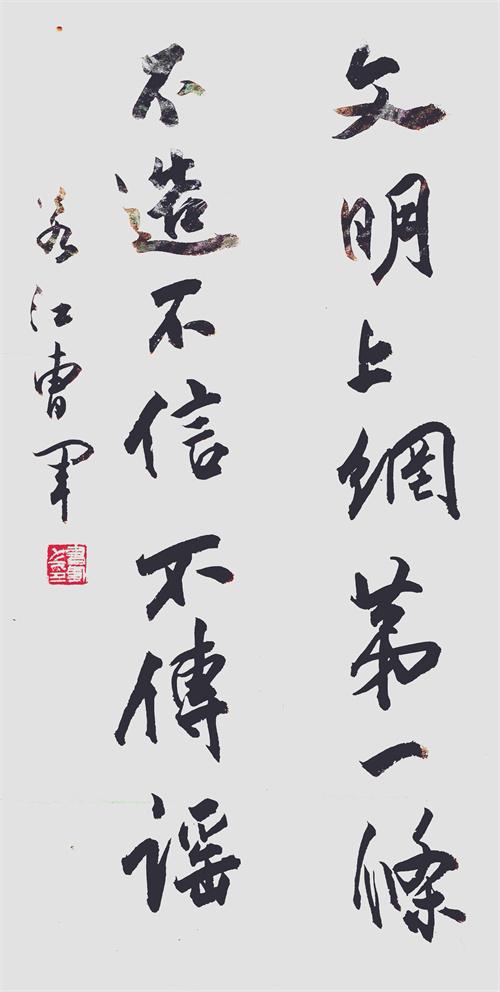 文明上網第一條
不造不信不傳謠
江曹军